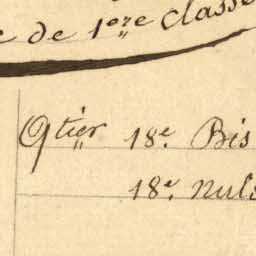 de 1ère classe
Qtier 18e. Bis
18e.